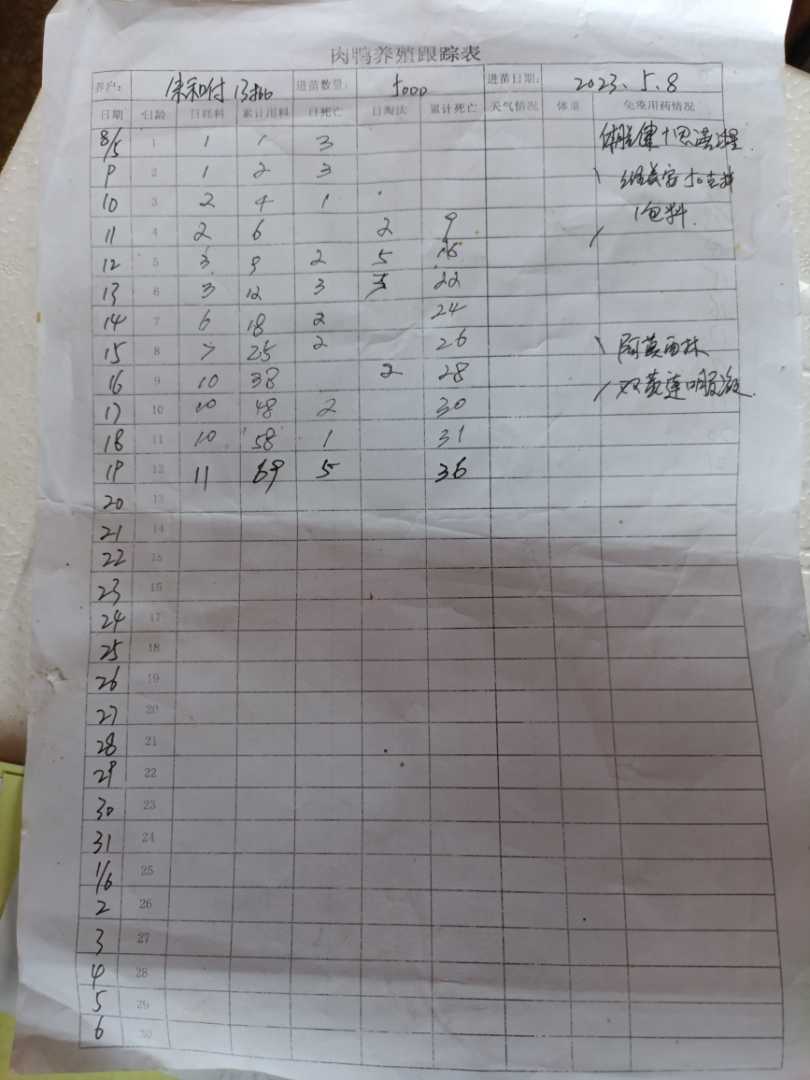 肉鸭养殖跟踪表
养户: 付 13批 进苗数量: 5000 进苗日期: 2023.5.8
日期 日龄 日耗料 累计用料 日死亡 日淘汰 累计死亡 天气情况 体重 免疫用药情况
8/5 1 1 1 3
9 2 1 2 3
10 3 2 4 1
11 4 2 6 2 9
1包料
12 5 3 9 2 5 16
13 6 3 12 3 3 22
14 7 6 18 2 24
15 8 7 25 2 26 阿莫西林
16 9 10 38 2 28 双黄连口服液
17 10 10 48 2 30
18 11 10 58 1 31
19 12 11 69 5 36
20 13
21 14
22 15
23 16
24 17
25 18
26 19
27 20
28 21
29 22
30 23
31 24
1/6 25
2 26
3 27
4 28
5 29
6 30